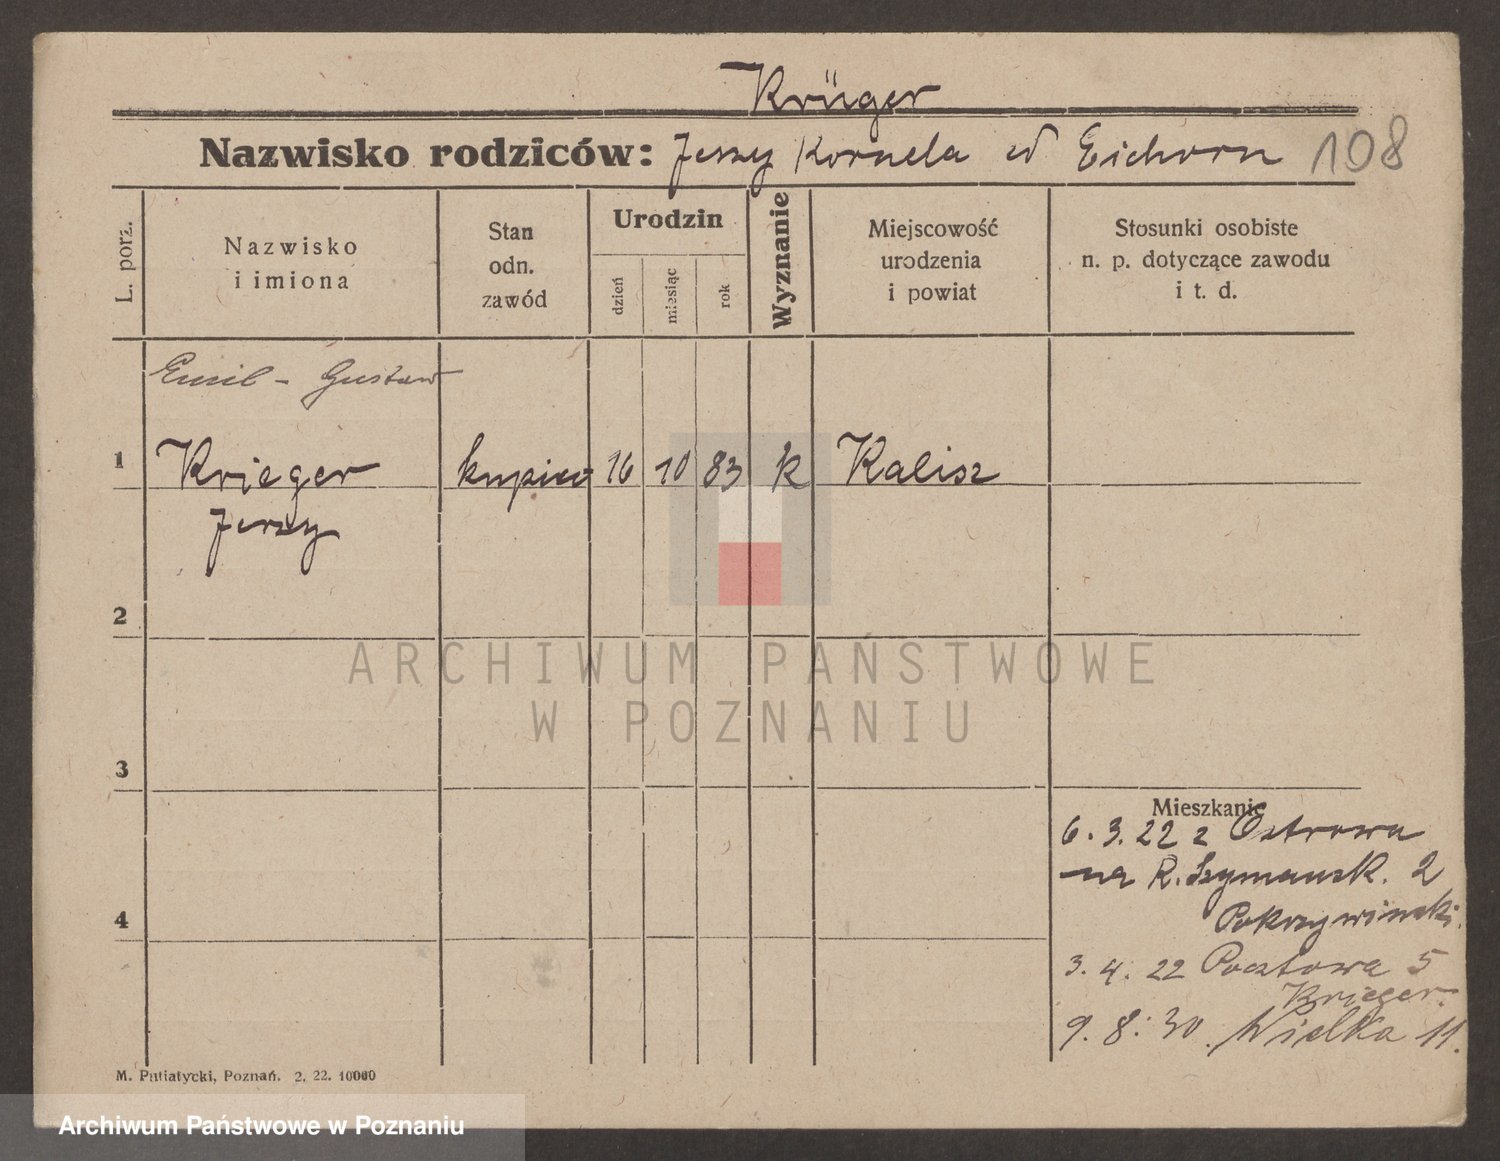 Krüger
Nazwisko rodziców: Jerzy Kornela zd Eichorn 108
L. porz.
Nazwisko
i imiona
Stan
odn.
zawód
Urodzin
dzień
miesiąc
rok
Wyznanie
Miejscowość
urodzenia
i powiat
Stosunki osobiste
n. p. dotyczące zawodu
i t. d.
Emil - Gustaw
1 Krieger kupiec 16 10 83 k Kalisz
Jerzy
2
ARCHIWUM PAŃSTWOWE
W POZNANIU
3
Mieszkanie
6. 3. 22 z Ostrowa
na R. Szymańsk. 2
4
Pokrzywiński.
3. 4. 22 Pocztowa 5
Krieger.
9. 8. 30. Wielka 11.
M. Putiatycki, Poznań. 2. 22. 10000
Archiwum Państwowe w Poznaniu